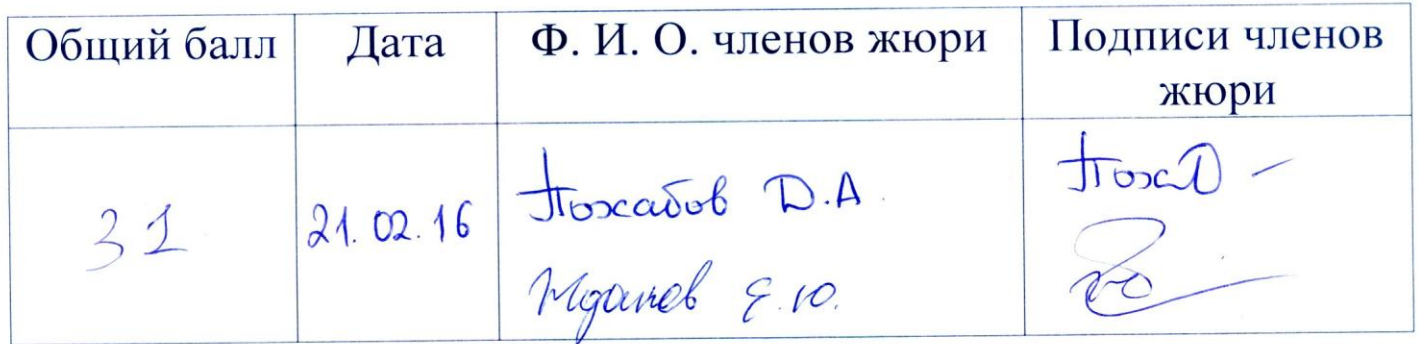 Общий балл Дата Ф. И. О. членов жюри Подписи членов
жюри
31 21.02.16 Похабов Д.А.
Жданов Е.Ю.